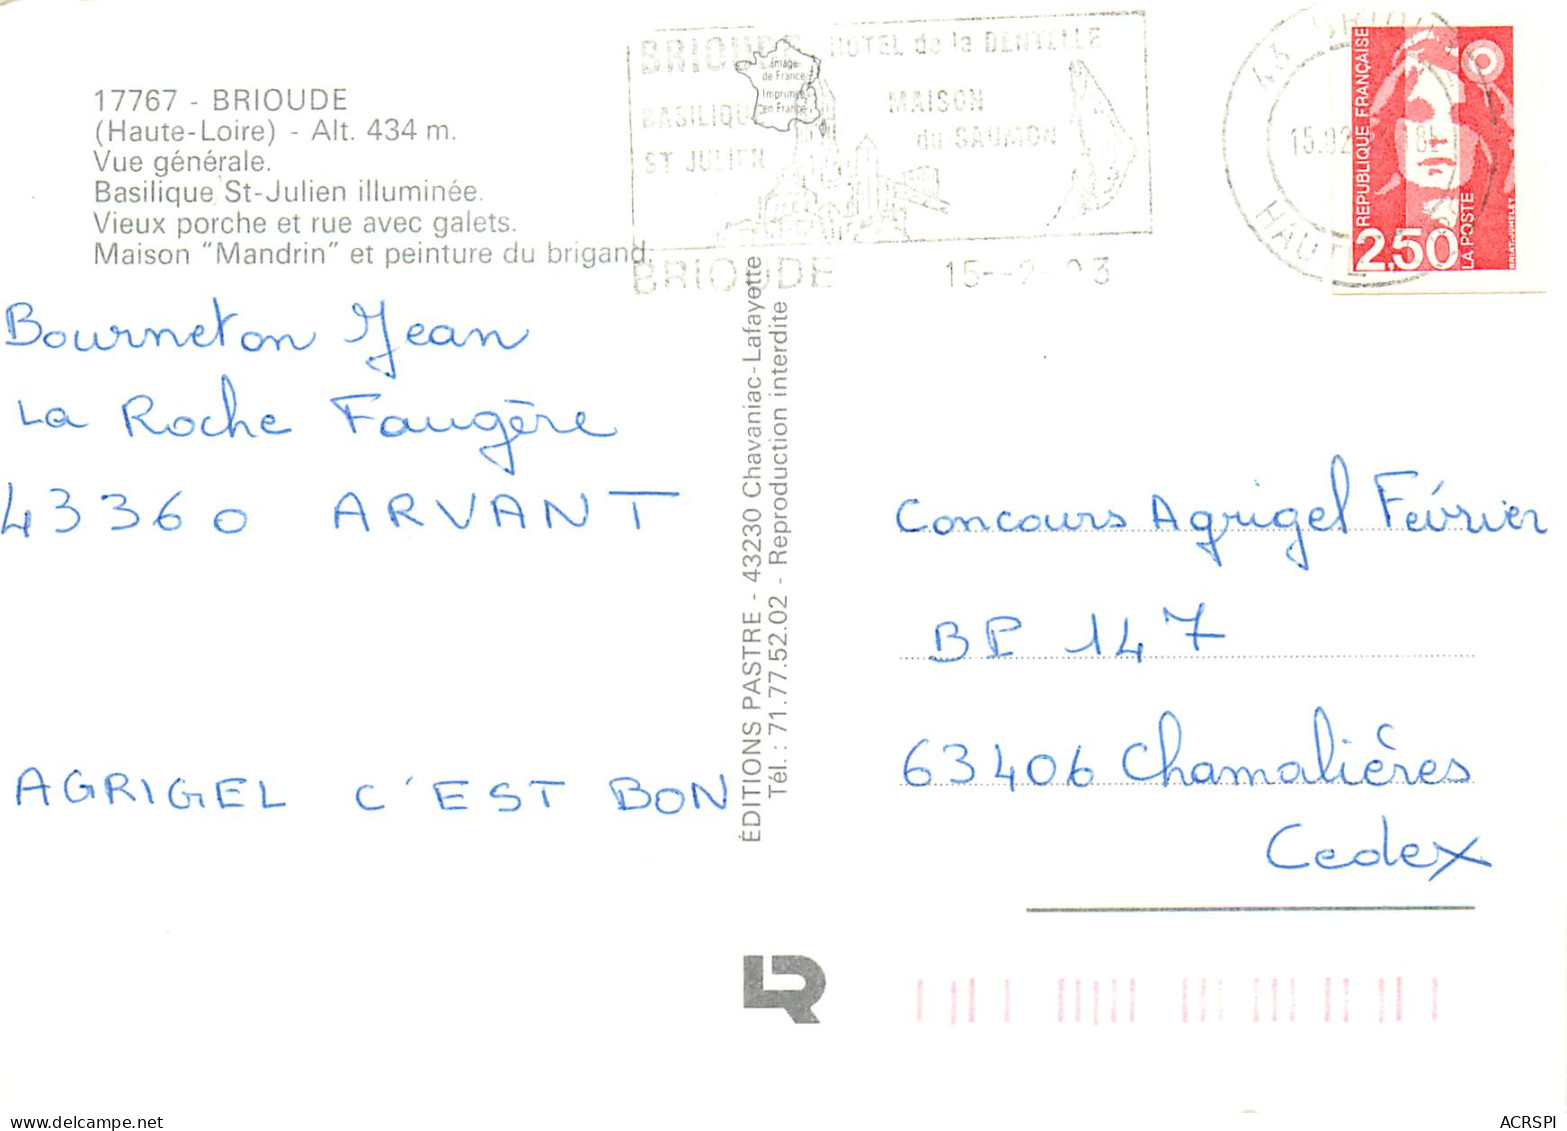 17767 - BRIOUDE
(Haute-Loire) - Alt. 434 m.
Vue générale.
Basilique St-Julien illuminée.
Vieux porche et rue avec galets.
Maison "Mandrin" et peinture du brigand.
BRIOUDE HOTEL de la DENTELLE
BASILIQUE MAISON
ST JULIEN du SAUMON
Image
de France
Imprimée
en France
BRIOUDE 15-2-93
43 BRIOUDE
15.02
HAUTE
REPUBLIQUE FRANÇAISE
2,50
LA POSTE
BRIAT-JUMELET
Bourneton Jean
La Roche Faugère
43360 ARVANT
AGRIGEL C'EST BON
ÉDITIONS PASTRE - 43230 Chavaniac-Lafayette
Tél. : 71.77.52.02 - Reproduction interdite
Concours Agrigel Février
BP 147
63406 Chamalières
Cedex
LR
ACRSPI